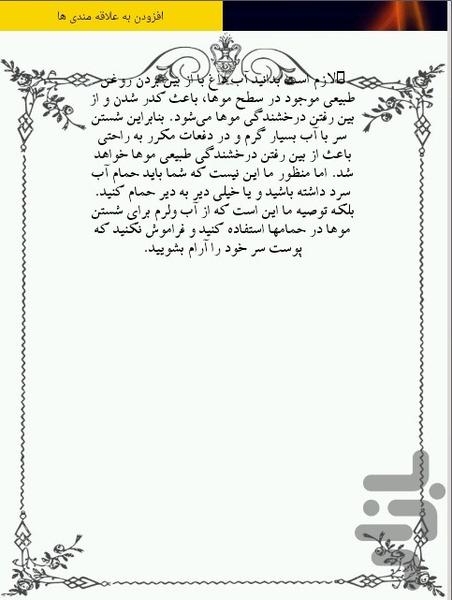 افزودن به علاقه مندی ها
لازم است بدانید آب داغ با از بین بردن روغن
طبیعی موجود در سطح موها، باعث کدر شدن و از
بین رفتن درخشندگی موها می‌شود. بنابراین شستن
سر با آب بسیار گرم و در دفعات مکرر به راحتی
باعث از بین رفتن درخشندگی طبیعی موها خواهد
شد. اما منظور ما این نیست که شما باید حمام آب
سرد داشته باشید و یا خیلی دیر به دیر حمام کنید.
بلکه توصیه ما این است که از آب ولرم برای شستن
موها در حمامها استفاده کنید و فراموش نکنید که
پوست سر خود را آرام بشویید.
بازار